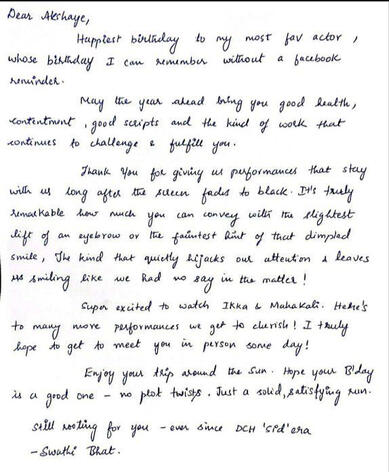 Dear Akshaye,
Happiest birthday to my most fav actor,
whose birthday I can remember without a facebook
reminder.
May the year ahead bring you good health,
contentment, good scripts and the kind of work that
continues to challenge & fulfill you.
Thank you for giving us performances that stay
with us long after the screen fades to black. It's truly
remarkable how much you can convey with the slightest
lift of an eyebrow or the faintest hint of that dimpled
smile, The kind that quietly hijacks our attention & leaves
us smiling like we had no say in the matter!
Super excited to watch Ikka & Mahakali. Here's
to many more performances we get to cherish! I truly
hope to get to meet you in person some day!
Enjoy your trip around the Sun. Hope your B'day
is a good one - no plot twists. Just a solid, satisfying run.
Still rooting for you - ever since DCH 'Sid' era
- Swathi Bhat.